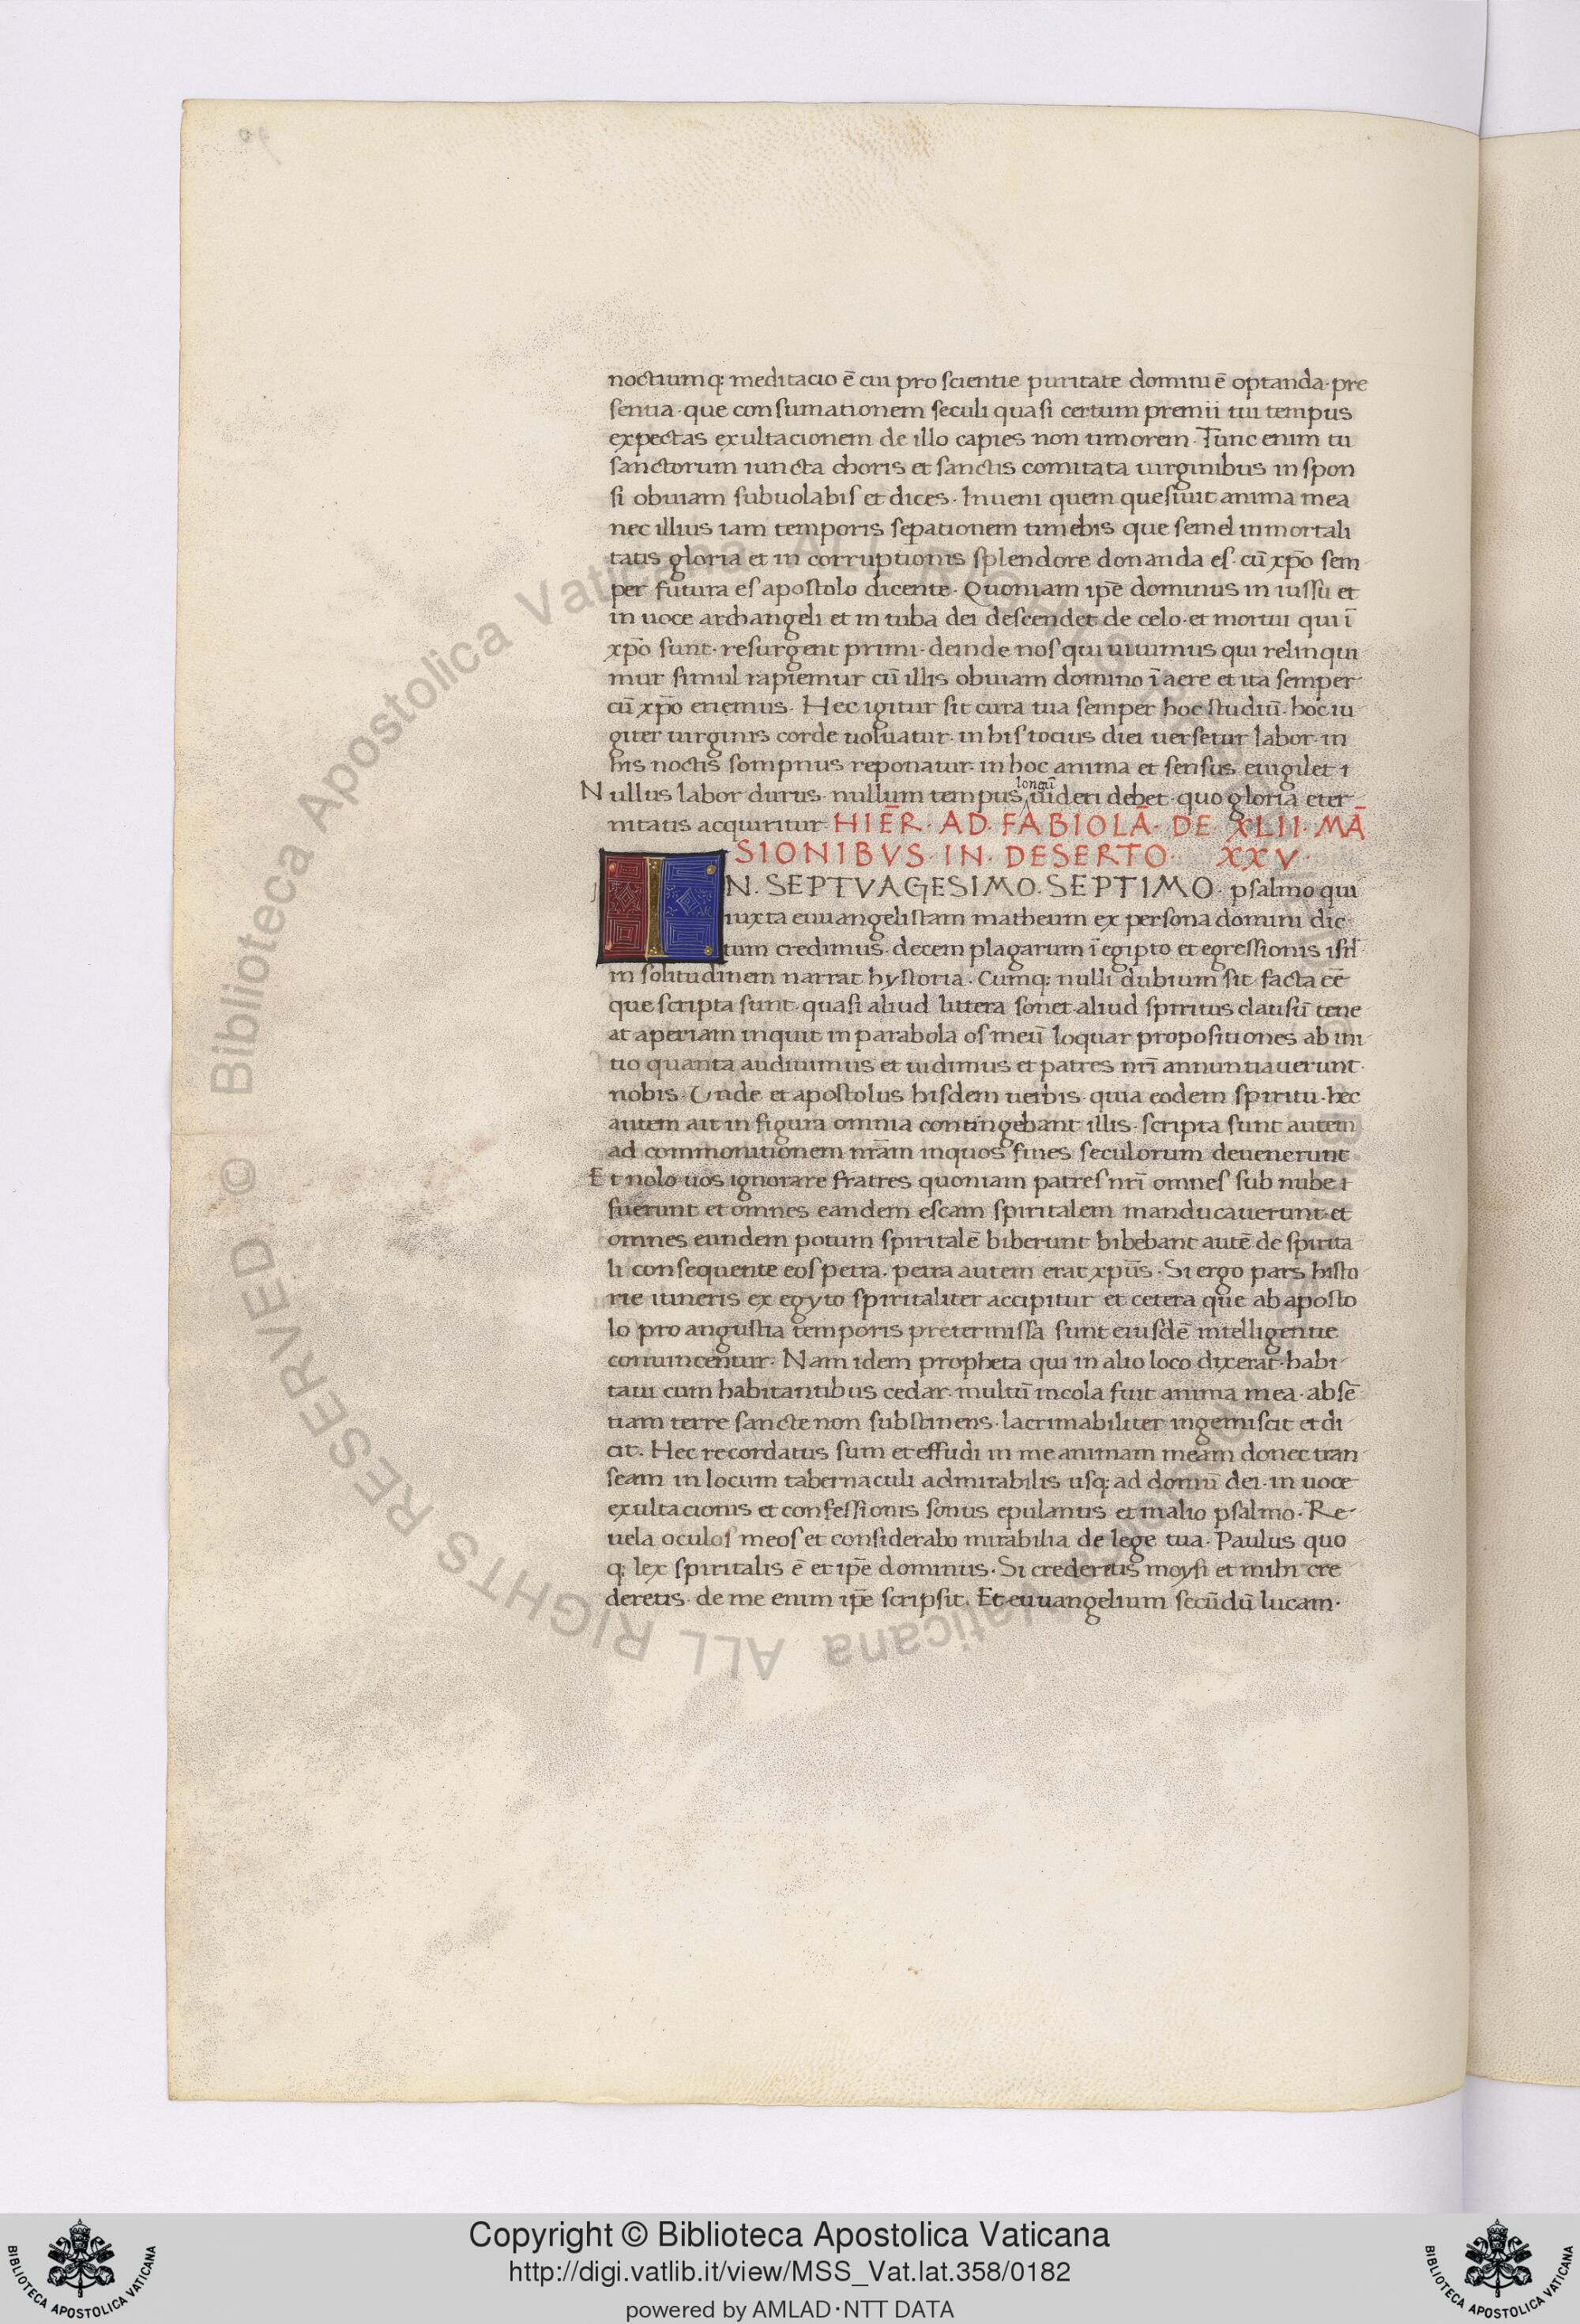 noctiumq: meditacio ē cui pro scientie puritate domini ē optanda· pre
sentia· que consumationem seculi quasi certum premii tui tempus
expectas exultacionem de illo capies non timorem· Tunc enim tu
sanctorum iuncta choris et sanctis comitata uirginibus in spon
si obuiam subuolabis et dices· Inueni quem quesiuit anima mea
nec illius iam temporis sepationem timebis que semel inmortali
tatis gloria et in corruptionis splendore donanda es· cū xp̄o sem
per futura es apostolo dicente· Quoniam ip̄e dominus in iussu et
in uoce archangeli et in tuba dei descendet de celo· et mortui qui ī
xp̄o sunt· resurgent primi· deinde nos qui uiuimus qui relinqui
mur simul rapiemur cū illis obuiam domino ī aere et ita semper
cū xp̄o eriemus· Hec igitur sit cura tua semper hoc studiū· hoc iu
giter uirginis corde uoluatur· in his tocius diei uersetur labor· in
his noctis sompnus reponatur· in hoc anima et sensus euigilet ı
Nullus labor durus· nullum tempus longū uideri debet· quo gloria eter
nitatis acquiritur· HIĒR· AD· FABIOLĀ· DE· XLII· MĀ
SIONIBVS· IN· DESERTO· XXV·
IN· SEPTVAGESIMO· SEPTIMO· psalmo qui
iuxta euuangelistam matheum ex persona domini dic
tum credimus· decem plagarum ī egipto et egressionis isrl̄
in solitudinem narrat hystoria· Cumq: nulli dubium sit· facta eē
que scripta sunt· quasi aliud littera sonet· aliud spiritus clausū tene
at aperiam inquit in parabola os meū loquar propositiones ab ini
tio quanta audiuimus et uidimus et patres nr̄i annuntiauerunt·
nobis· Unde et apostolus hisdem uerbis· quia eodem spiritu· hec
autem ait in figura omnia contingebant illis· scripta sunt autem
ad commonitionem nr̄am inquos fines seculorum deuenerunt
Et nolo uos ignorare fratres quoniam patres nr̄i omnes sub nube ı
fuerunt et omnes eandem escam spiritalem manducauerunt· et
omnes eundem potum spiritalē biberunt bibebant autē de spirita
li consequente eos petra· petra autem erat xp̄us· Si ergo pars histo
rie itineris ex egyto spiritaliter accipitur et cetera que ab aposto
lo pro angustia temporis pretermissa sunt eiusdē intelligentie
conuincentur· Nam idem propheta qui in alio loco dixerat· habi
taui cum habitantibus cedar· multū incola fuit anima mea· absē
tiam terre sancte non substinens· lacrimabiliter ingemiscit et di
cit· Hec recordatus sum et effudi in me animam meam donec tran
seam in locum tabernaculi admirabilis usq: ad domū dei· in uoce
exultacionis et confessionis sonus epulantis et in alio psalmo· Re
uela oculos meos et considerabo mirabilia de lege tua· Paulus quo
q: lex spiritalis ē et ip̄e dominus· Si crederitis moysi et mihi cre
deretis· de me enim ip̄e scripsit· Et euuangelium secūdū lucam·
© Biblioteca Apostolica Vaticana ALL RIGHTS RESERVED
Copyright © Biblioteca Apostolica Vaticana
http://digi.vatlib.it/view/MSS_Vat.lat.358/0182
powered by AMLAD·NTT DATA
BIBLIOTECA APOSTOLICA VATICANA
BIBLIOTECA APOSTOLICA VATICANA